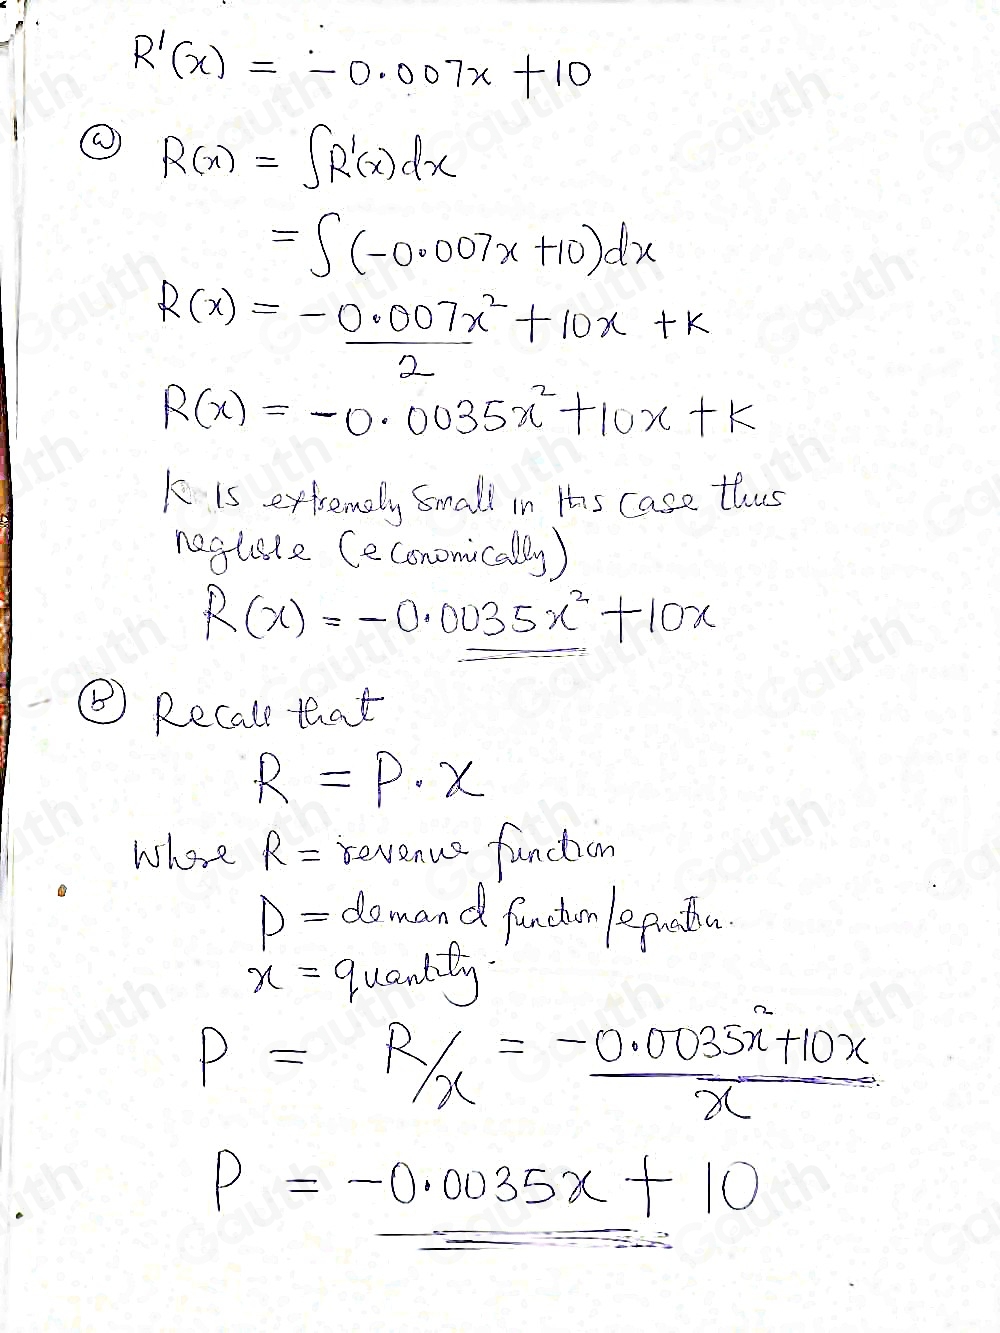 R'(x) = -0.007x + 10
(a) R(x) = ∫R'(x)dx
= ∫(-0.007x + 10)dx
R(x) = -0.007x²/2 + 10x + K
R(x) = -0.0035x² + 10x + K
K is extremely small in this case thus
(economically)
R(x) = -0.0035x² + 10x
(b) Recall that
R = P.x
where R = revenue function
P = demand function/equation.
x = quantity.
P = R/x = -0.0035x² + 10x/x
P = -0.0035x + 10
Gauth